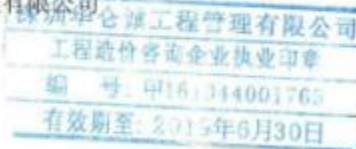 有限公司
深圳华仑诚工程管理有限公司
工程造价咨询企业执业印章
编 号:甲16 344001765
有效期至:2015年6月30日